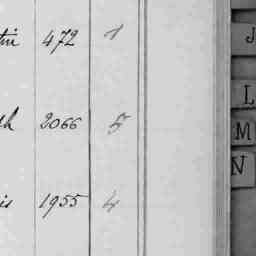 tin 472 1
th 2066 5
is 1955 4
J
L
M
N